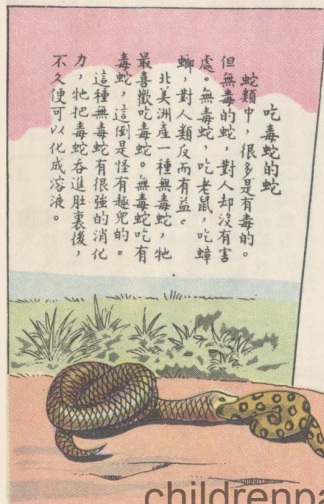 吃毒蛇的蛇
蛇類中，很多是有毒的。
但無毒的蛇，對人却沒有害
處。無毒蛇，吃老鼠，吃蟑
螂，對人類反而有益。
北美洲產一種無毒蛇，牠
最喜歡吃毒蛇。無毒蛇吃有
毒蛇，這倒是怪有趣兒的。
這種無毒蛇有很強的消化
力，牠把毒蛇吞進肚裏後，
不久便可以化成溶液。
childrenpa